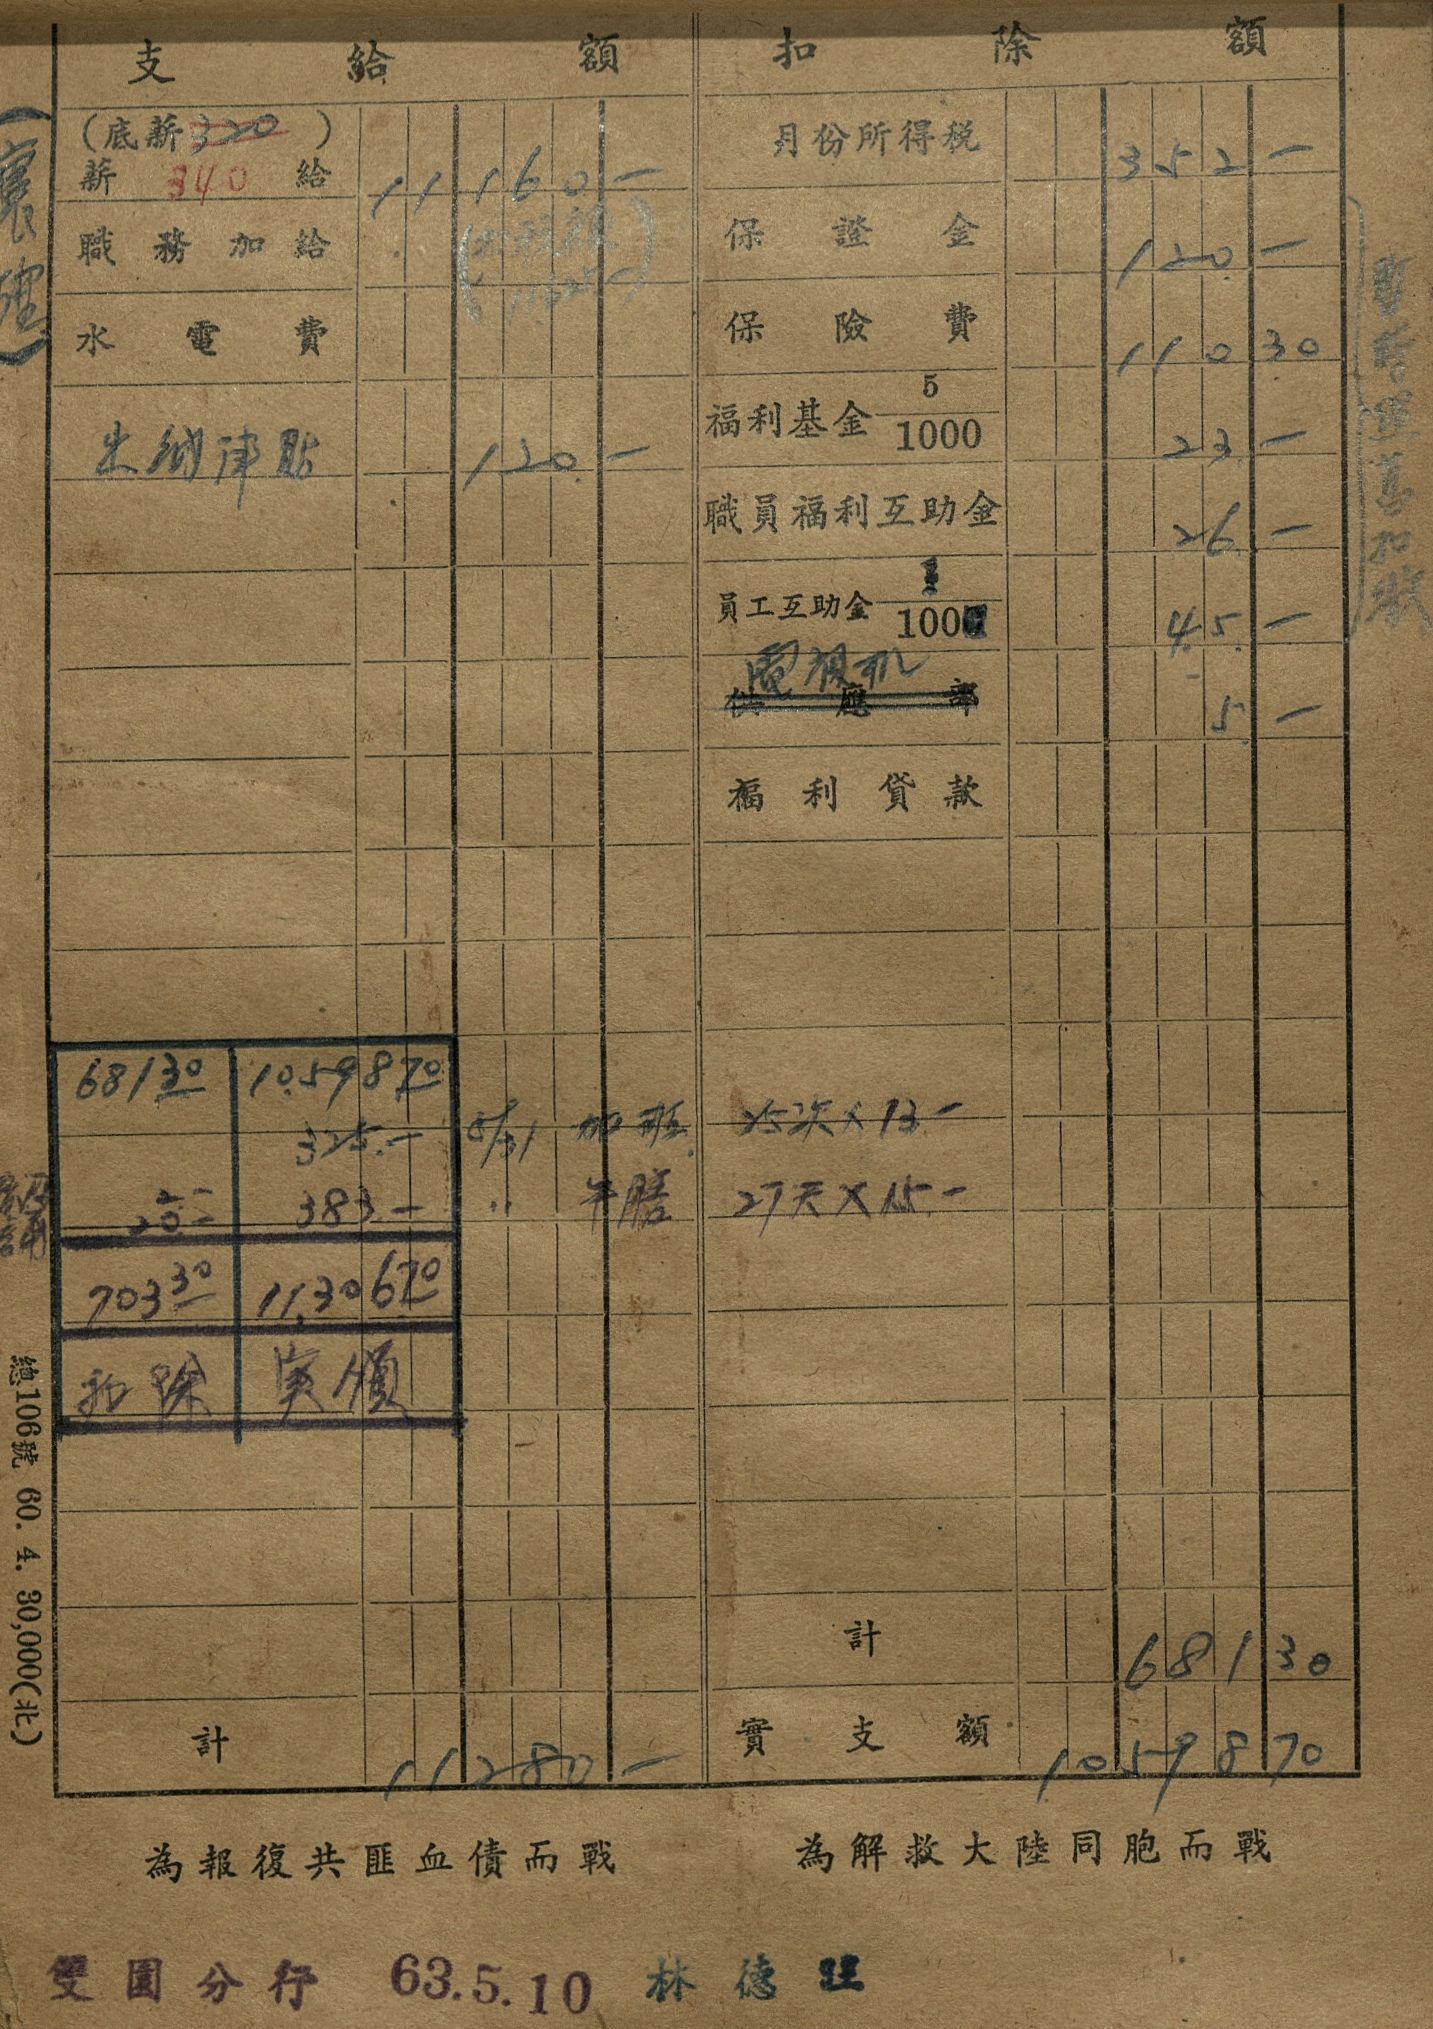 支給額 扣除額
(底薪320)
薪 340 給 11160-
月份所得税 352-
職務加給
保證金 120-
水電費
保險費 110 30
福利基金 5/1000 23-
津貼 120-
職員福利互助金 26-
員工互助金 1/100 45-
電視机
供應部 5-
福利貸款
681 30 10,598 70
325.- 5/31 加班 25次×13.-
383.- 〃 午膳 27天×15.-
703 30 11,306 70
扣除 実領
計 681 30
計 11280-
實支額 10598 70
為報復共匪血債而戰 為解救大陸同胞而戰
雙園分行 63.5.10 林德
總106號 60. 4. 30,000(北)